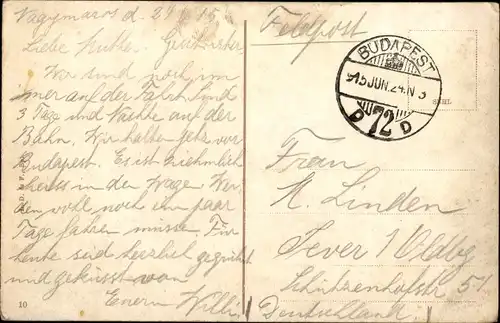 Nagymaros d. 24.6.15
Liebe Mutter. Geschwister
Wir sind noch im
mer auf der Fahrt. Sind
3 Tage und Nächte auf der
Bahn. Wir halten jetzt vor
Budapest. Es ist ziehmlich
heiss in der Wage. Wer
den wohl noch ein paar
Tage fahren müssen. Für
heute seid herzlich gegrüßt
und geküsst von
Eurem Willi
10
Feldpost
BUDAPEST
915 JUN. 24. N 3
72
D
Frau
M. Linden
Jever i/Oldbg
Schützenhofstr. 51
Deutschland